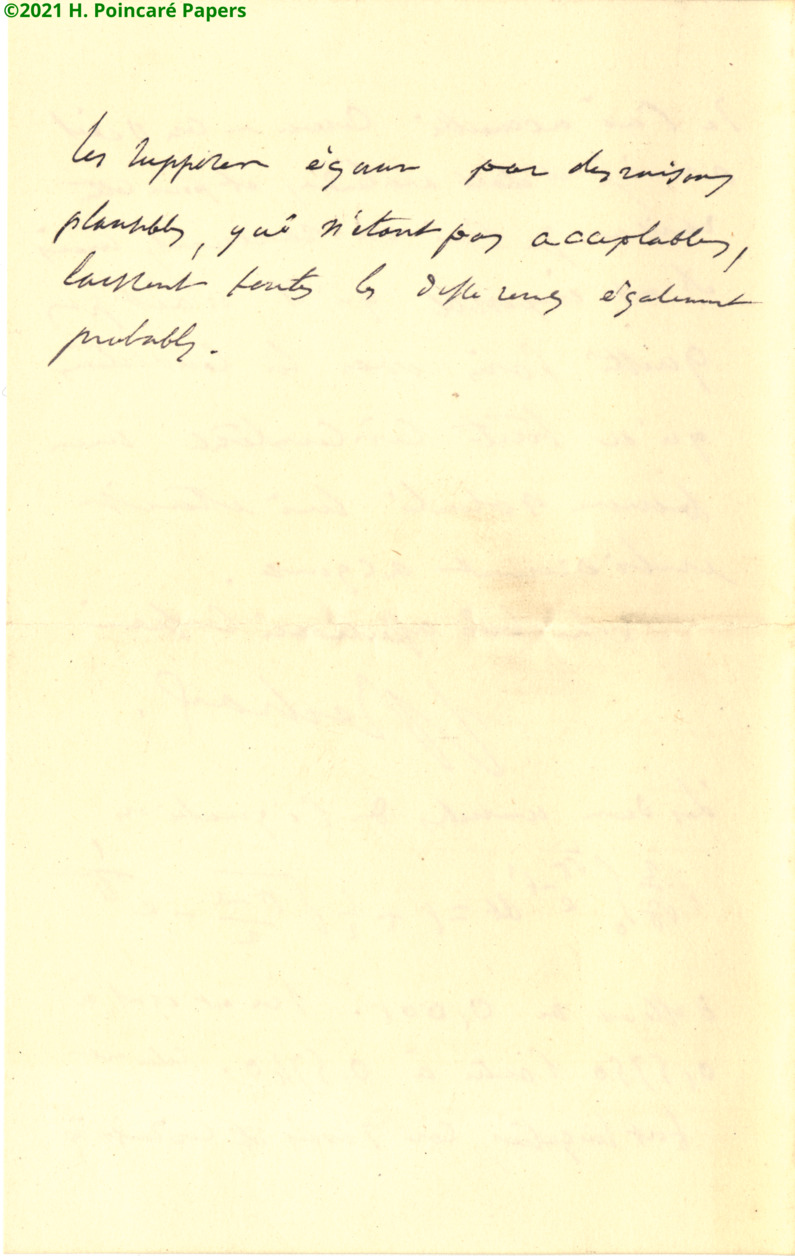 ©2021 H. Poincaré Papers
les supposer égaux par des raisons
plausibles, qui n'étant pas acceptables,
laissent toutes les différences également
probables.